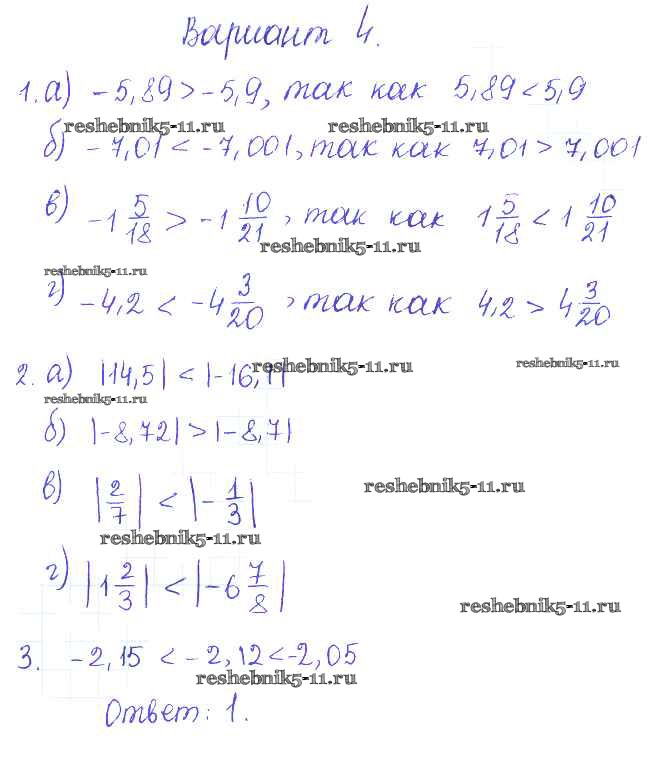 Вариант 4.
1. а) -5,89 > -5,9, так как 5,89 < 5,9
reshebnik5-11.ru reshebnik5-11.ru
б) -7,01 < -7,001, так как 7,01 > 7,001
в) -1 5/18 > -1 10/21, так как 1 5/18 < 1 10/21
reshebnik5-11.ru
reshebnik5-11.ru
г) -4,2 < -4 3/20, так как 4,2 > 4 3/20
reshebnik5-11.ru reshebnik5-11.ru
2. а) |14,5| < |-16,1|
reshebnik5-11.ru
б) |-8,72| > |-8,7|
в) |2/7| < |-1/3|
reshebnik5-11.ru
reshebnik5-11.ru
г) |1 2/3| < |-6 7/8|
reshebnik5-11.ru
3. -2,15 < -2,12 < -2,05
reshebnik5-11.ru
Ответ: 1.